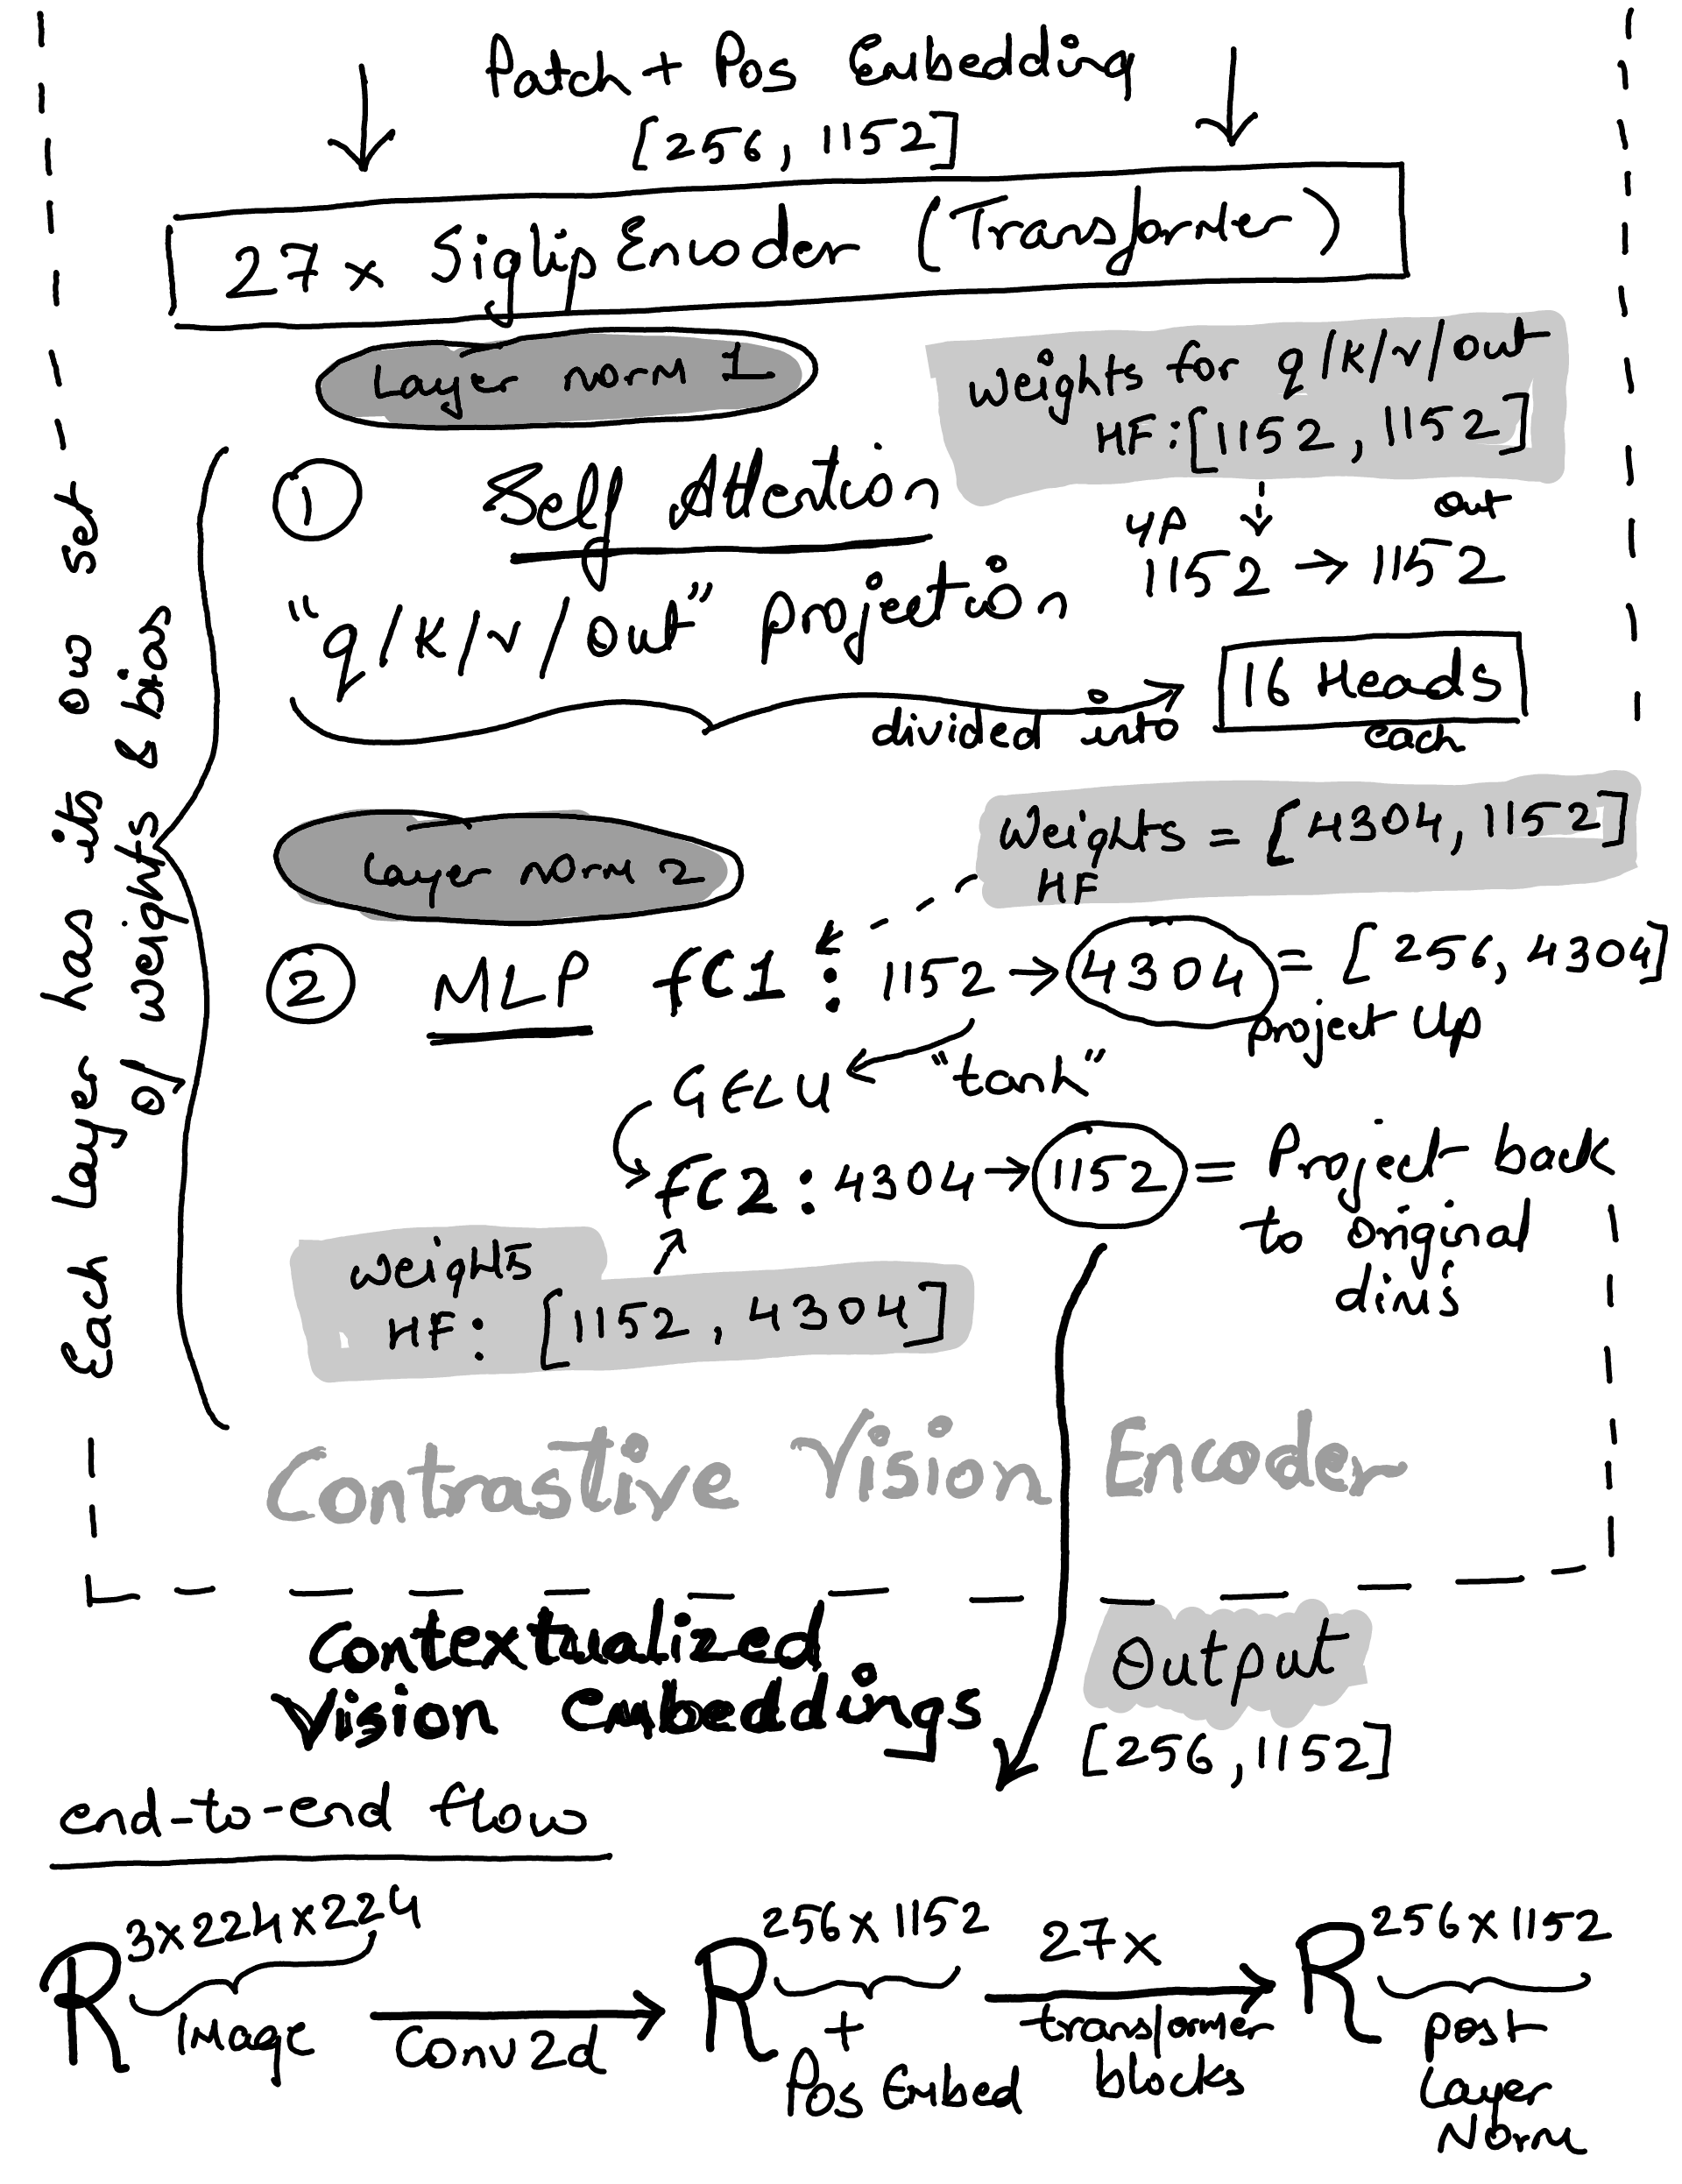 Patch + Pos Embedding
[256, 1152]
27 x Siglip Encoder (Transformer)
Layer Norm 1
Weights for q/k/v/out
HF: [1152, 1152]
① Self Attention
out
1152 → 1152
"q/k/v/out" projection
divided into
16 Heads
each
Each layer has its ow set
of weights & bias
Layer Norm 2
Weights = [4304, 1152]
HF
② MLP fC1 : 1152 → 4304 = [256, 4304]
project Up
GELU "tanh"
fC2 : 4304 → 1152 = Project back
to original
dims
Weights
HF: [1152, 4304]
Contrastive Vision Encoder
Contextualized
Vision Embeddings
Output
[256, 1152]
end-to-end flow
R 3x224x224
Image
Conv2d
R 256x1152
+
Pos Embed
27x
transformer
blocks
R 256x1152
post
Layer
Norm